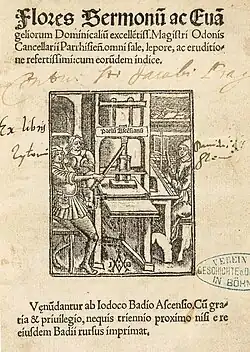 Flores Sermonū ac Euā
geliorum Dominicaliū excellētiss. Magistri Odonis
Cancellarii Parrhisień. omni sale, lepore, ac eruditio
ne refertissimi: cum eorūdem indice.
Jacobi
Ex libris
Prelū Ascēsianū
VEREIN
GESCHICHTE
IN BÖHM
Vęnūdantur ab Iodoco Badio Ascensio, Cū gra
tia & priuilegio, nequis triennio proximo nisi e re
eiusdem Badii rursus imprimat,